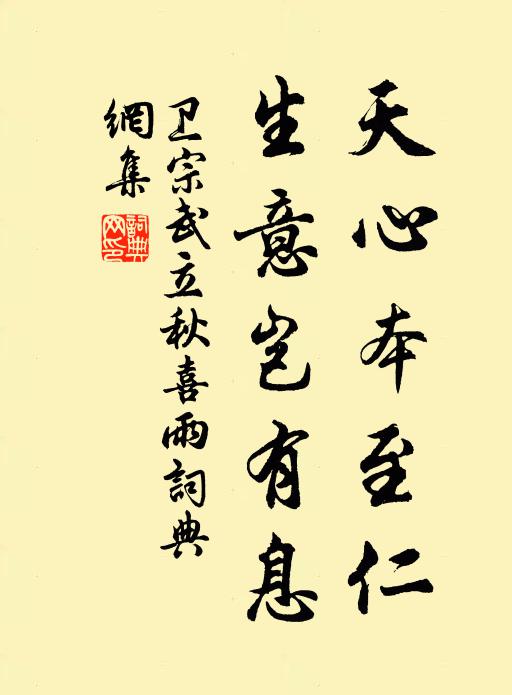 天心本至仁
生意岂有息
卫宗武立秋喜雨詞典
網集
詞典
网印